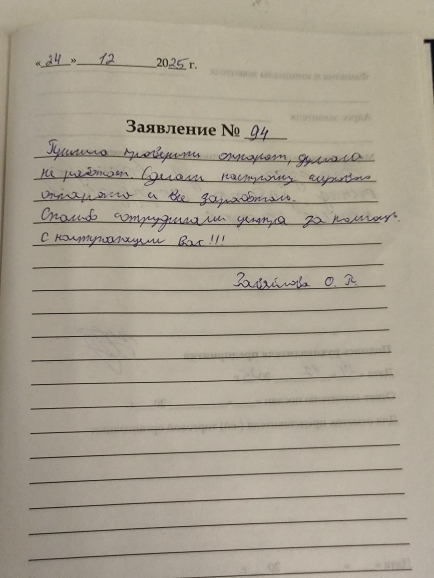 « 24 » 12 2025 г.
Заявление № 94
Пришла проверить аппарат, думала
не работает. Сделали настройку слухового
аппарата и все заработало.
Спасибо сотрудникам центра за помощь.
С наступающим Вас!!!
Завьялова О. П.